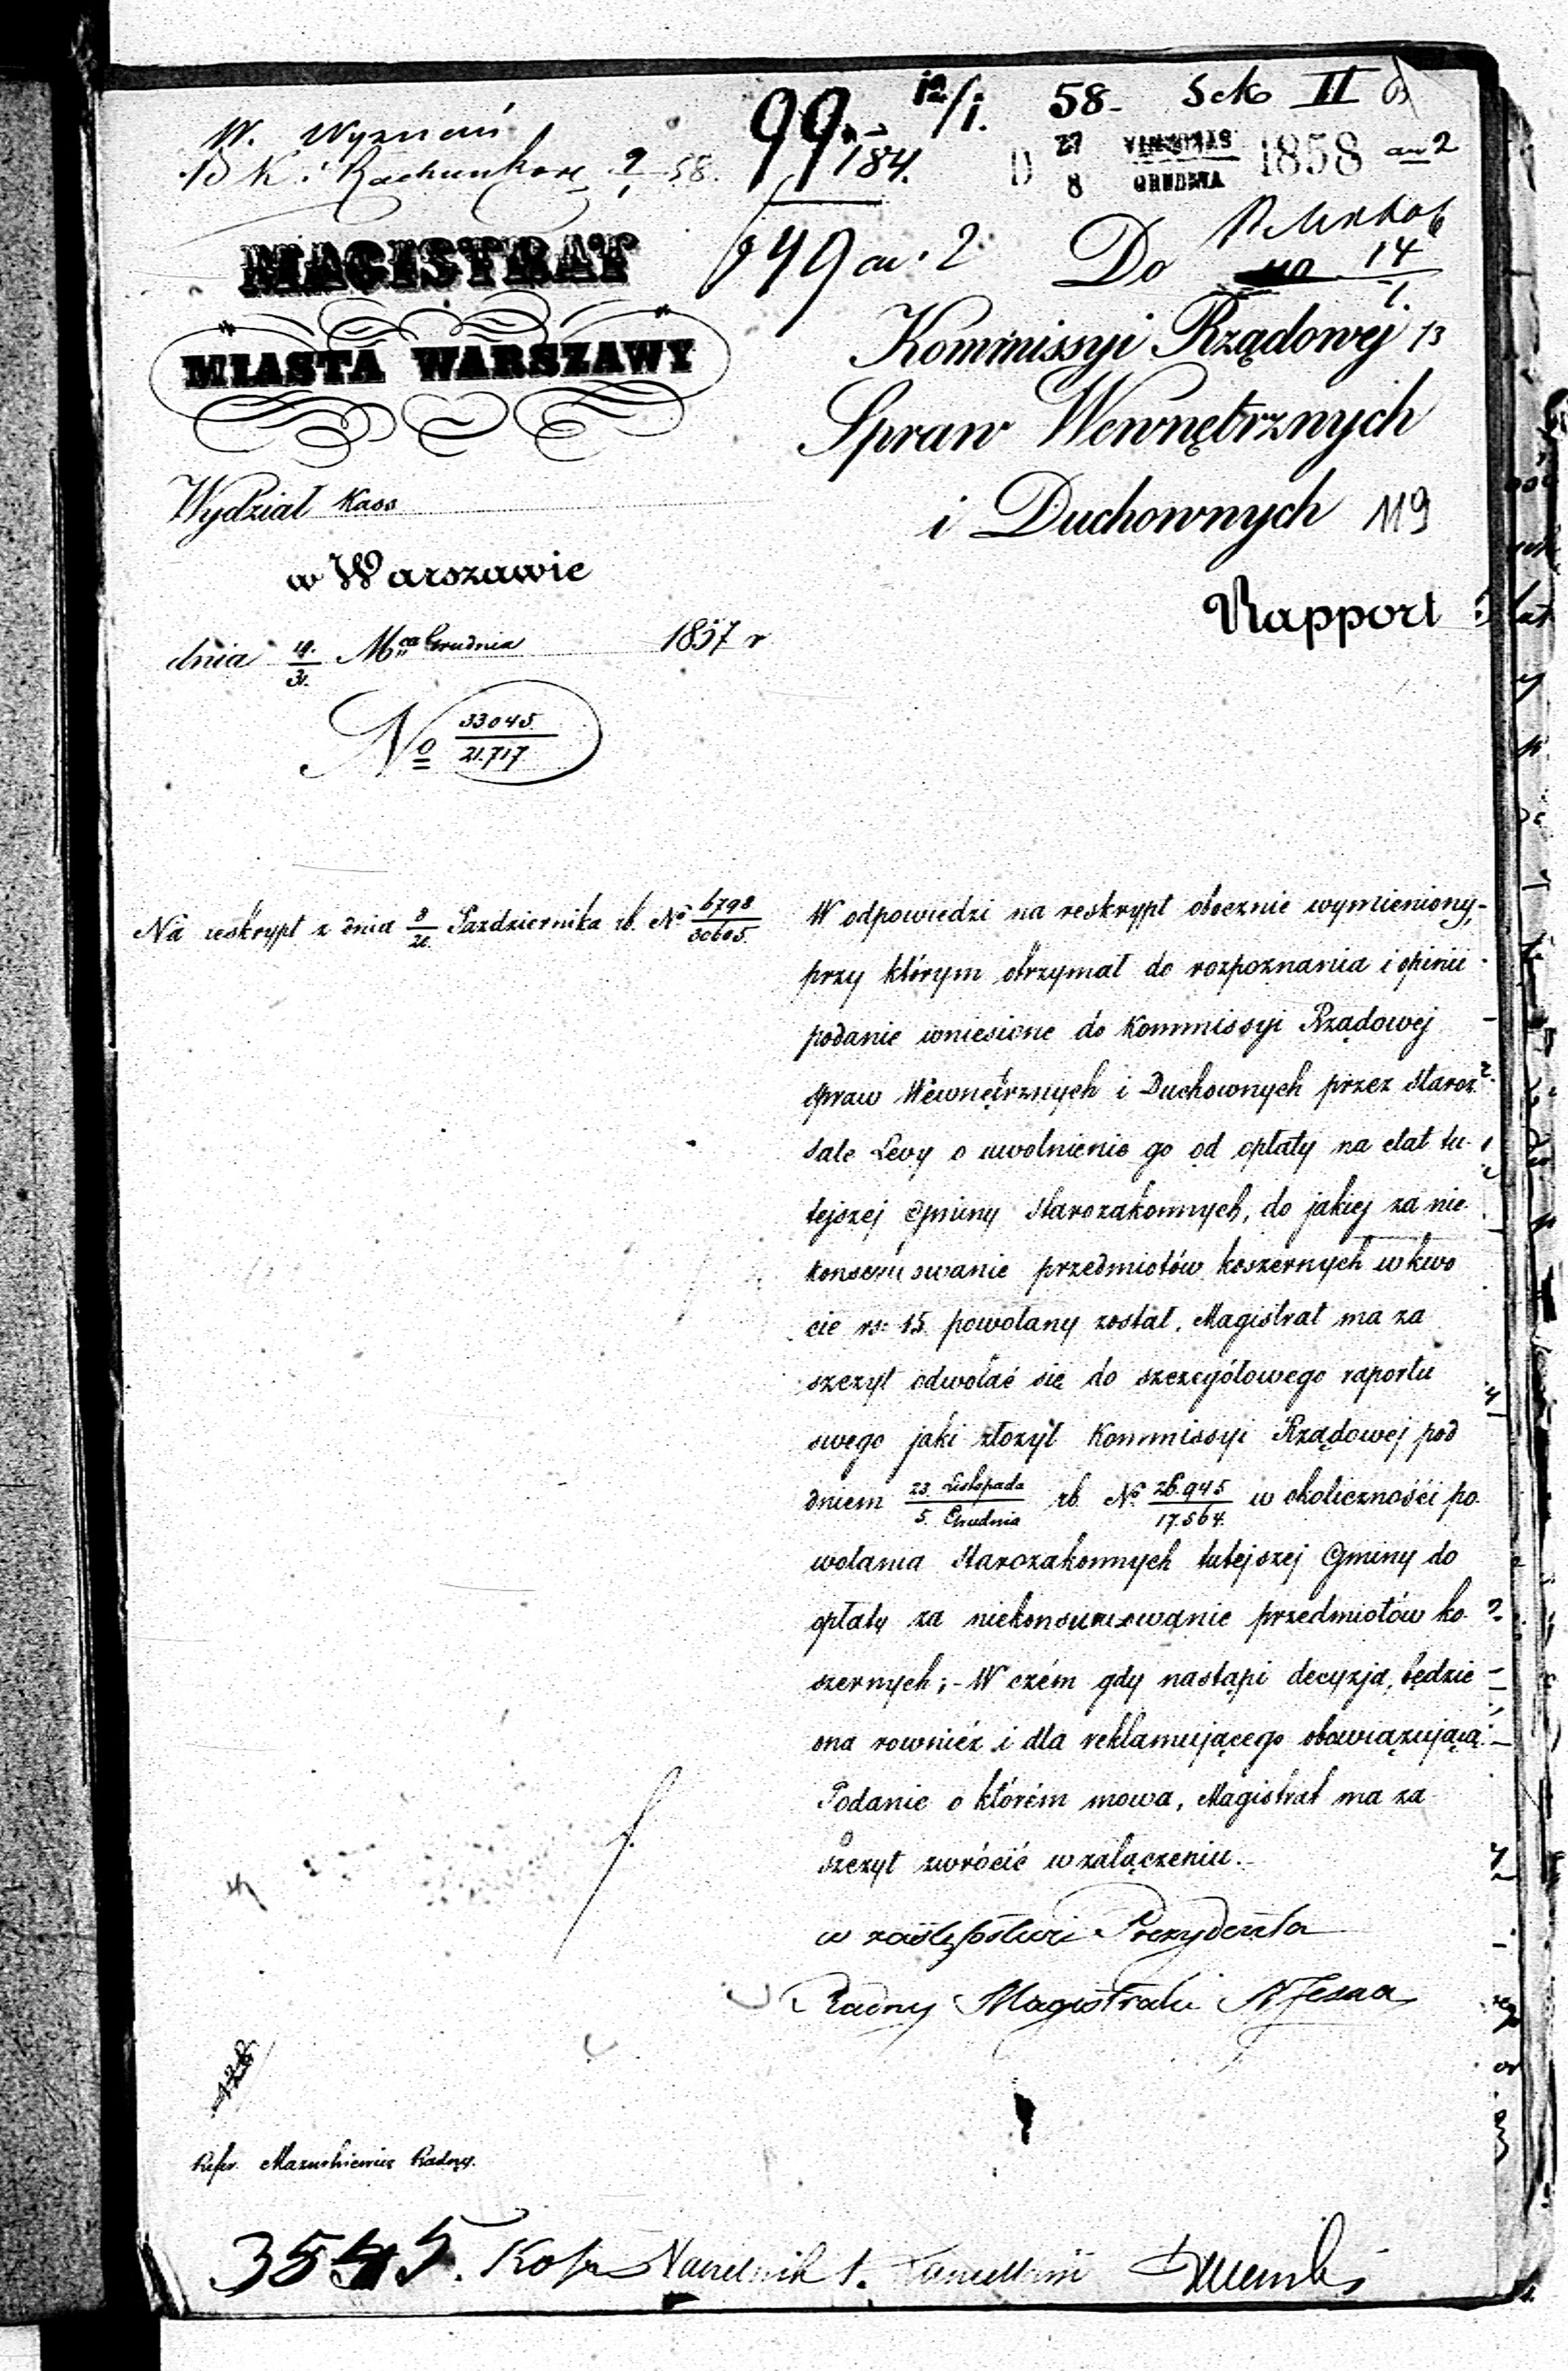 W. Wyznań
99. 12/1. 58 - Sek II
B K. i Rachunkow 9/1 58.
184.
D 27/8 GRUDNIA 1858
MAGISTRAT
MIASTA WARSZAWY
Do
14/1.
Kommissyi Rządowej 13
Spraw Wewnętrznych
i Duchownych 119
Wydział Kass
w Warszawie
Rapport
dnia 19./31. Mca Grudnia 1857 r
No 33045./21.717.
Na reskrypt z dnia 8/20. Pazdziernika rb. No 6798/30605.
W odpowiedzi na reskrypt obocznie wymieniony,
przy którym otrzymał do rozpoznania i opinii
podanie wniesione do Kommissyi Rządowej
Spraw Wewnętrznych i Duchownych przez Staroz.
Sale Levy o uwolnienie go od opłaty na etat tu-
tejszej Gminy Starozakonnych, do jakiej za nie-
konsumowanie przedmiotów koszernych w kwo
cie rs: 15. powołany został, Magistrat ma za
szczyt odwołać się do szczegółowego raportu
swego jaki złożył Kommissyi Rządowej pod
dniem 23. Listopada/5. Grudnia rb. No. 26.945/17.564. w okoliczności po-
wołania Starozakonnych tutejszej Gminy do
opłaty za niekonsumowanie przedmiotów ko-
szernych; - W czém gdy nastąpi decyzja, będzie
ona rownież i dla reklamującego obowiązującą. -
Podanie o którém mowa, Magistrat ma za-
szczyt zwrócić w załączeniu. -
w zastępstwie Prezydenta
Radny Magistratu
Refer. Mazurkiewicz Radny.